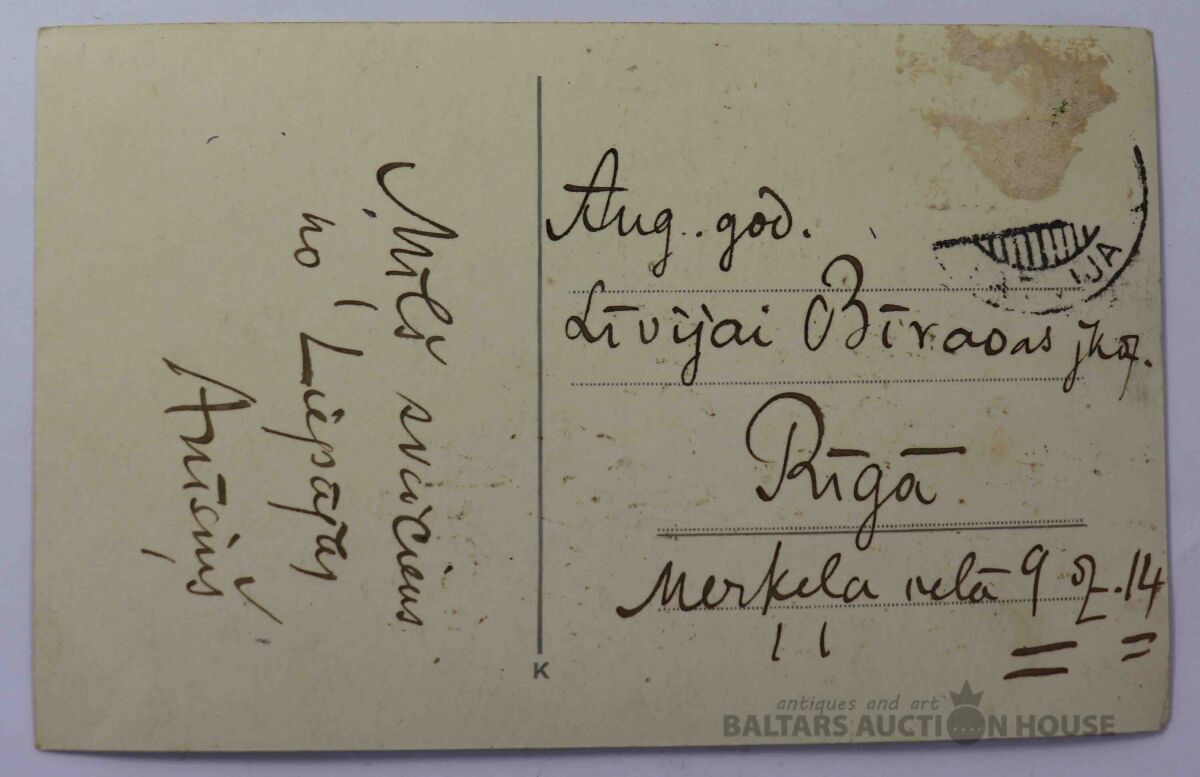 Mīļš sveiciens
no Liepājas
Antiņš
Aug. god.
Līvijai Bīrands jkdz.
Rīgā
Merķeļa ielā 9 dz. 14
K
IJA
antiques and art
BALTARS AUCTION HOUSE